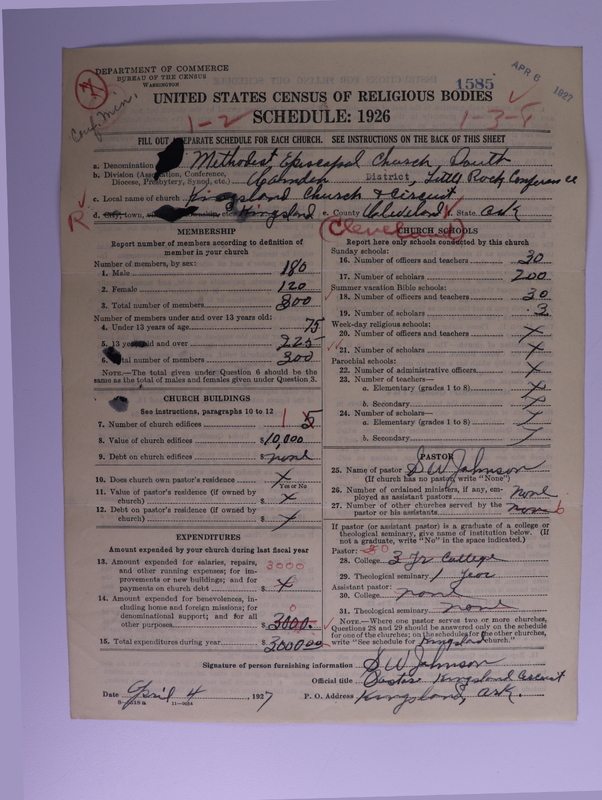 DEPARTMENT OF COMMERCE
BUREAU OF THE CENSUS
WASHINGTON
Conf. Min.
1585
APR 6 1927
UNITED STATES CENSUS OF RELIGIOUS BODIES
SCHEDULE: 1926
1-2 1-3-5
FILL OUT SEPARATE SCHEDULE FOR EACH CHURCH. SEE INSTRUCTIONS ON THE BACK OF THIS SHEET
a. Denomination Methodist Episcopal Church, South
b. Division (Association, Conference, Diocese, Presbytery, Synod, etc.) Camden District, Little Rock Conference
c. Local name of church Kingsland Church & Circuit
R d. City, town, Kingsland e. County State Ark
Cleveland
MEMBERSHIP
Report number of members according to definition of
member in your church
Number of members, by sex:
1. Male 180
2. Female 120
3. Total number of members 300
Number of members under and over 13 years old:
4. Under 13 years of age 75
5. 13 years old and over 225
6. Total number of members 300
NOTE.—The total given under Question 6 should be the
same as the total of males and females given under Question 3.
CHURCH BUILDINGS
See instructions, paragraphs 10 to 12
7. Number of church edifices 1 5
8. Value of church edifices $10,000
9. Debt on church edifices $ none
10. Does church own pastor's residence? x
Yes or No
11. Value of pastor's residence (if owned by
church) $ x
12. Debt on pastor's residence (if owned by
church) $ x
EXPENDITURES
Amount expended by your church during last fiscal year
13. Amount expended for salaries, repairs, 3000
and other running expenses; for im-
provements or new buildings; and for
payments on church debt $ x
14. Amount expended for benevolences, in-
cluding home and foreign missions; for 0
denominational support; and for all
other purposes $ 3000.
15. Total expenditures during year $ 3000 00
CHURCH SCHOOLS
Report here only schools conducted by this church
Sunday schools:
16. Number of officers and teachers 30
17. Number of scholars 200
Summer vacation Bible schools:
18. Number of officers and teachers 30
19. Number of scholars 3
Week-day religious schools:
20. Number of officers and teachers x
21. Number of scholars x
Parochial schools:
22. Number of administrative officers x
23. Number of teachers—
a. Elementary (grades 1 to 8) x
b. Secondary x
24. Number of scholars—
a. Elementary (grades 1 to 8) x
b. Secondary x
PASTOR
25. Name of pastor S W Johnson
(If church has no pastor, write "None")
26. Number of ordained ministers, if any, em-
ployed as assistant pastors none
27. Number of other churches served by the
pastor or his assistants none 6
If pastor (or assistant pastor) is a graduate of a college or
theological seminary, give name of institution below. (If
not a graduate, write "No" in the space indicated.)
Pastor:
28. College 3 yr College
29. Theological seminary 1 year
Assistant pastor:
30. College none
31. Theological seminary none
NOTE.—Where one pastor serves two or more churches,
Questions 28 and 29 should be answered only on the schedule
for one of the churches; on the schedules for the other churches,
write "See schedule for Kingsland church."
Signature of person furnishing information S W Johnson
Official title Pastor Kingsland Circuit
Date April 4, 1927 P. O. Address Kingsland, Ark.
11—9654